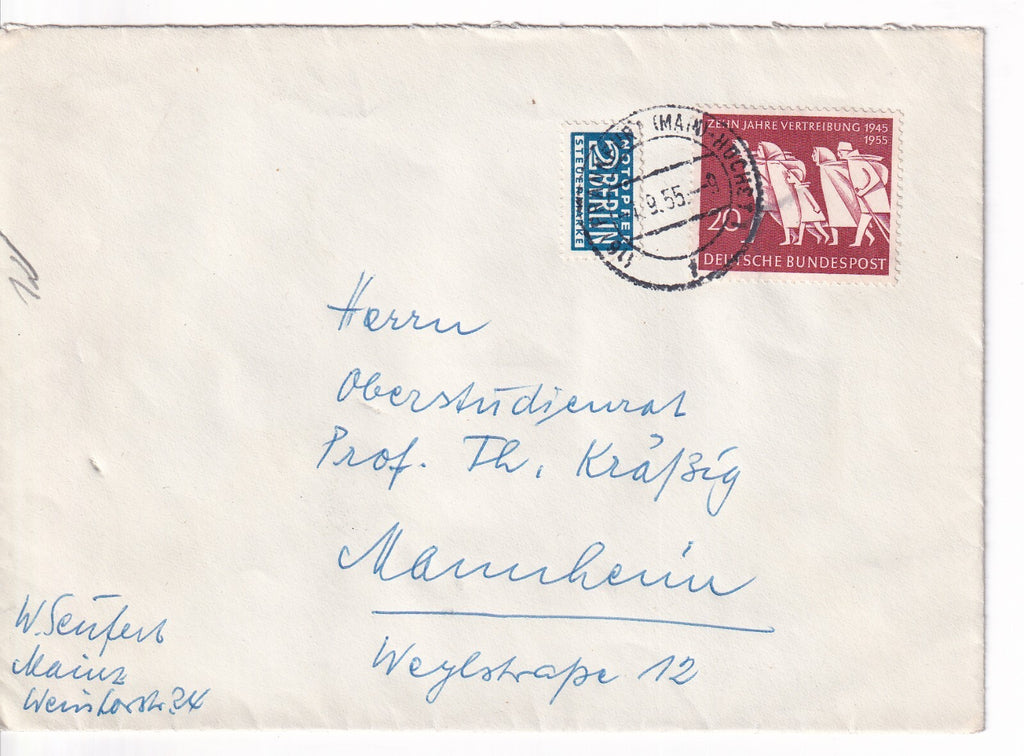 ZEHN JAHRE VERTREIBUNG 1945
1955
20
DEUTSCHE BUNDESPOST
NOTOPFER
2 BERLIN
STEUERMARKE
(MAIN)-HÖCHST
9.55.
Herrn
Oberstudienrat
Prof. Th. Kräßig
Mannheim
Weylstraße 12
W. Seufert
Mainz